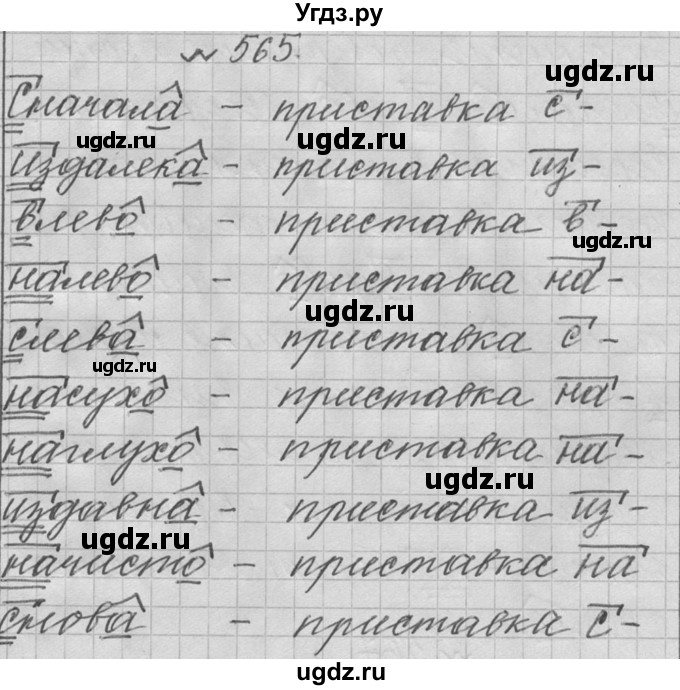 Угдз.ру
№ 565.
Сначала - приставка с-
ugdz.ru
ugdz.ru
ugdz.ru
издалека - приставка из-
влево - приставка в-
ugdz.ru
налево - приставка на-
ugdz.ru
слева - приставка с-
ugdz.ru
насухо - приставка на-
наглухо - приставка на-
ugdz.ru
издавна - приставка из-
ugdz.ru
начисто - приставка на
снова - приставка с-
ugdz.ru